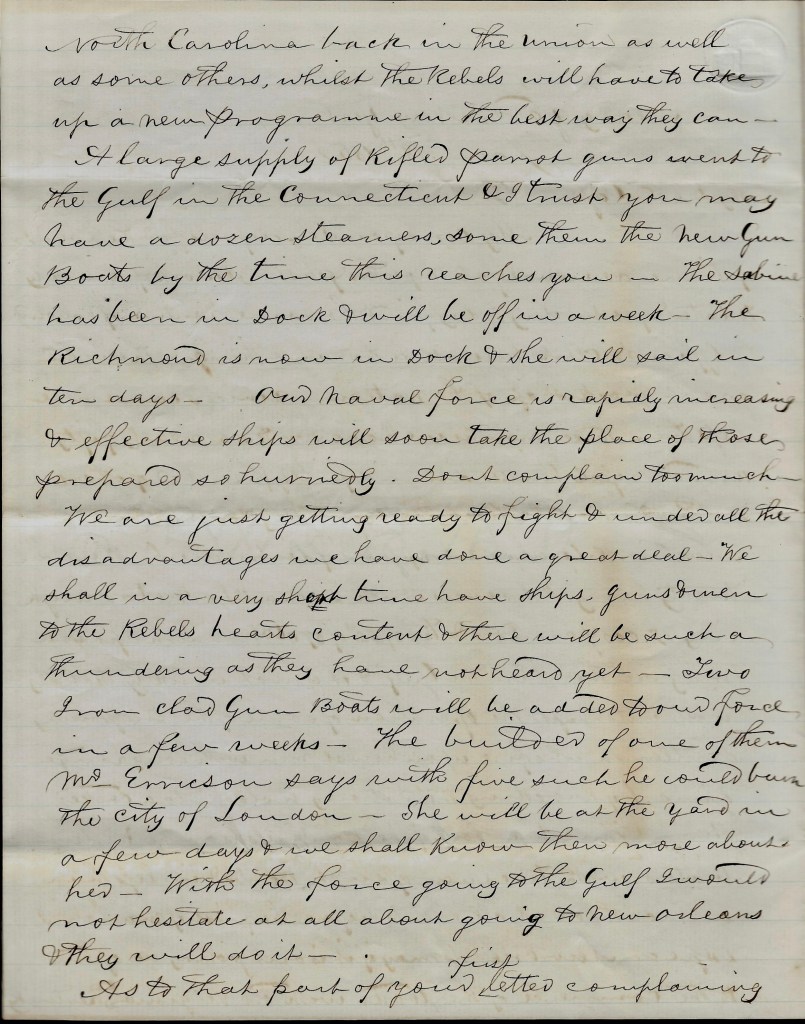 North Carolina back in the union as well
as some others, whilst the Rebels will have to take
up a new programme in the best way they can —
A large supply of Rifled parrot guns went to
the Gulf in the Connecticut & I trust you may
have a dozen steamers, some them the new Gun
Boats by the time this reaches you — The Sabine
has been in Dock & will be off in a week — The
Richmond is now in Dock & she will sail in
ten days — Our Naval force is rapidly increasing
& effective ships will soon take the place of those
prepared so hurriedly. Dont complain too much —
We are just getting ready to fight & under all the
disadvantages we have done a great deal — We
shall in a very short time have ships, guns & men
to the Rebels hearts content & there will be such a
thundering as they have not heard yet — Two
Iron clad Gun Boats will be added to our force
in a few weeks — The builder of one of them
Mr Erricson says with five such he could burn
the city of London — She will be at the yard in
a few days & we shall know then more about
her — With the force going to the Gulf I would
not hesitate at all about going to New Orleans
& they will do it — .
As to that part of your first letter complaining